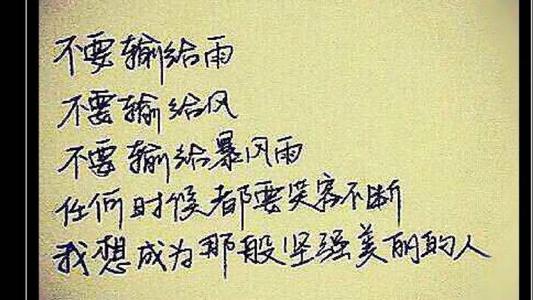 不要输给雨
不要输给风
不要输给暴风雨
任何时候都要笑容不断
我想成为那般坚强美丽的人